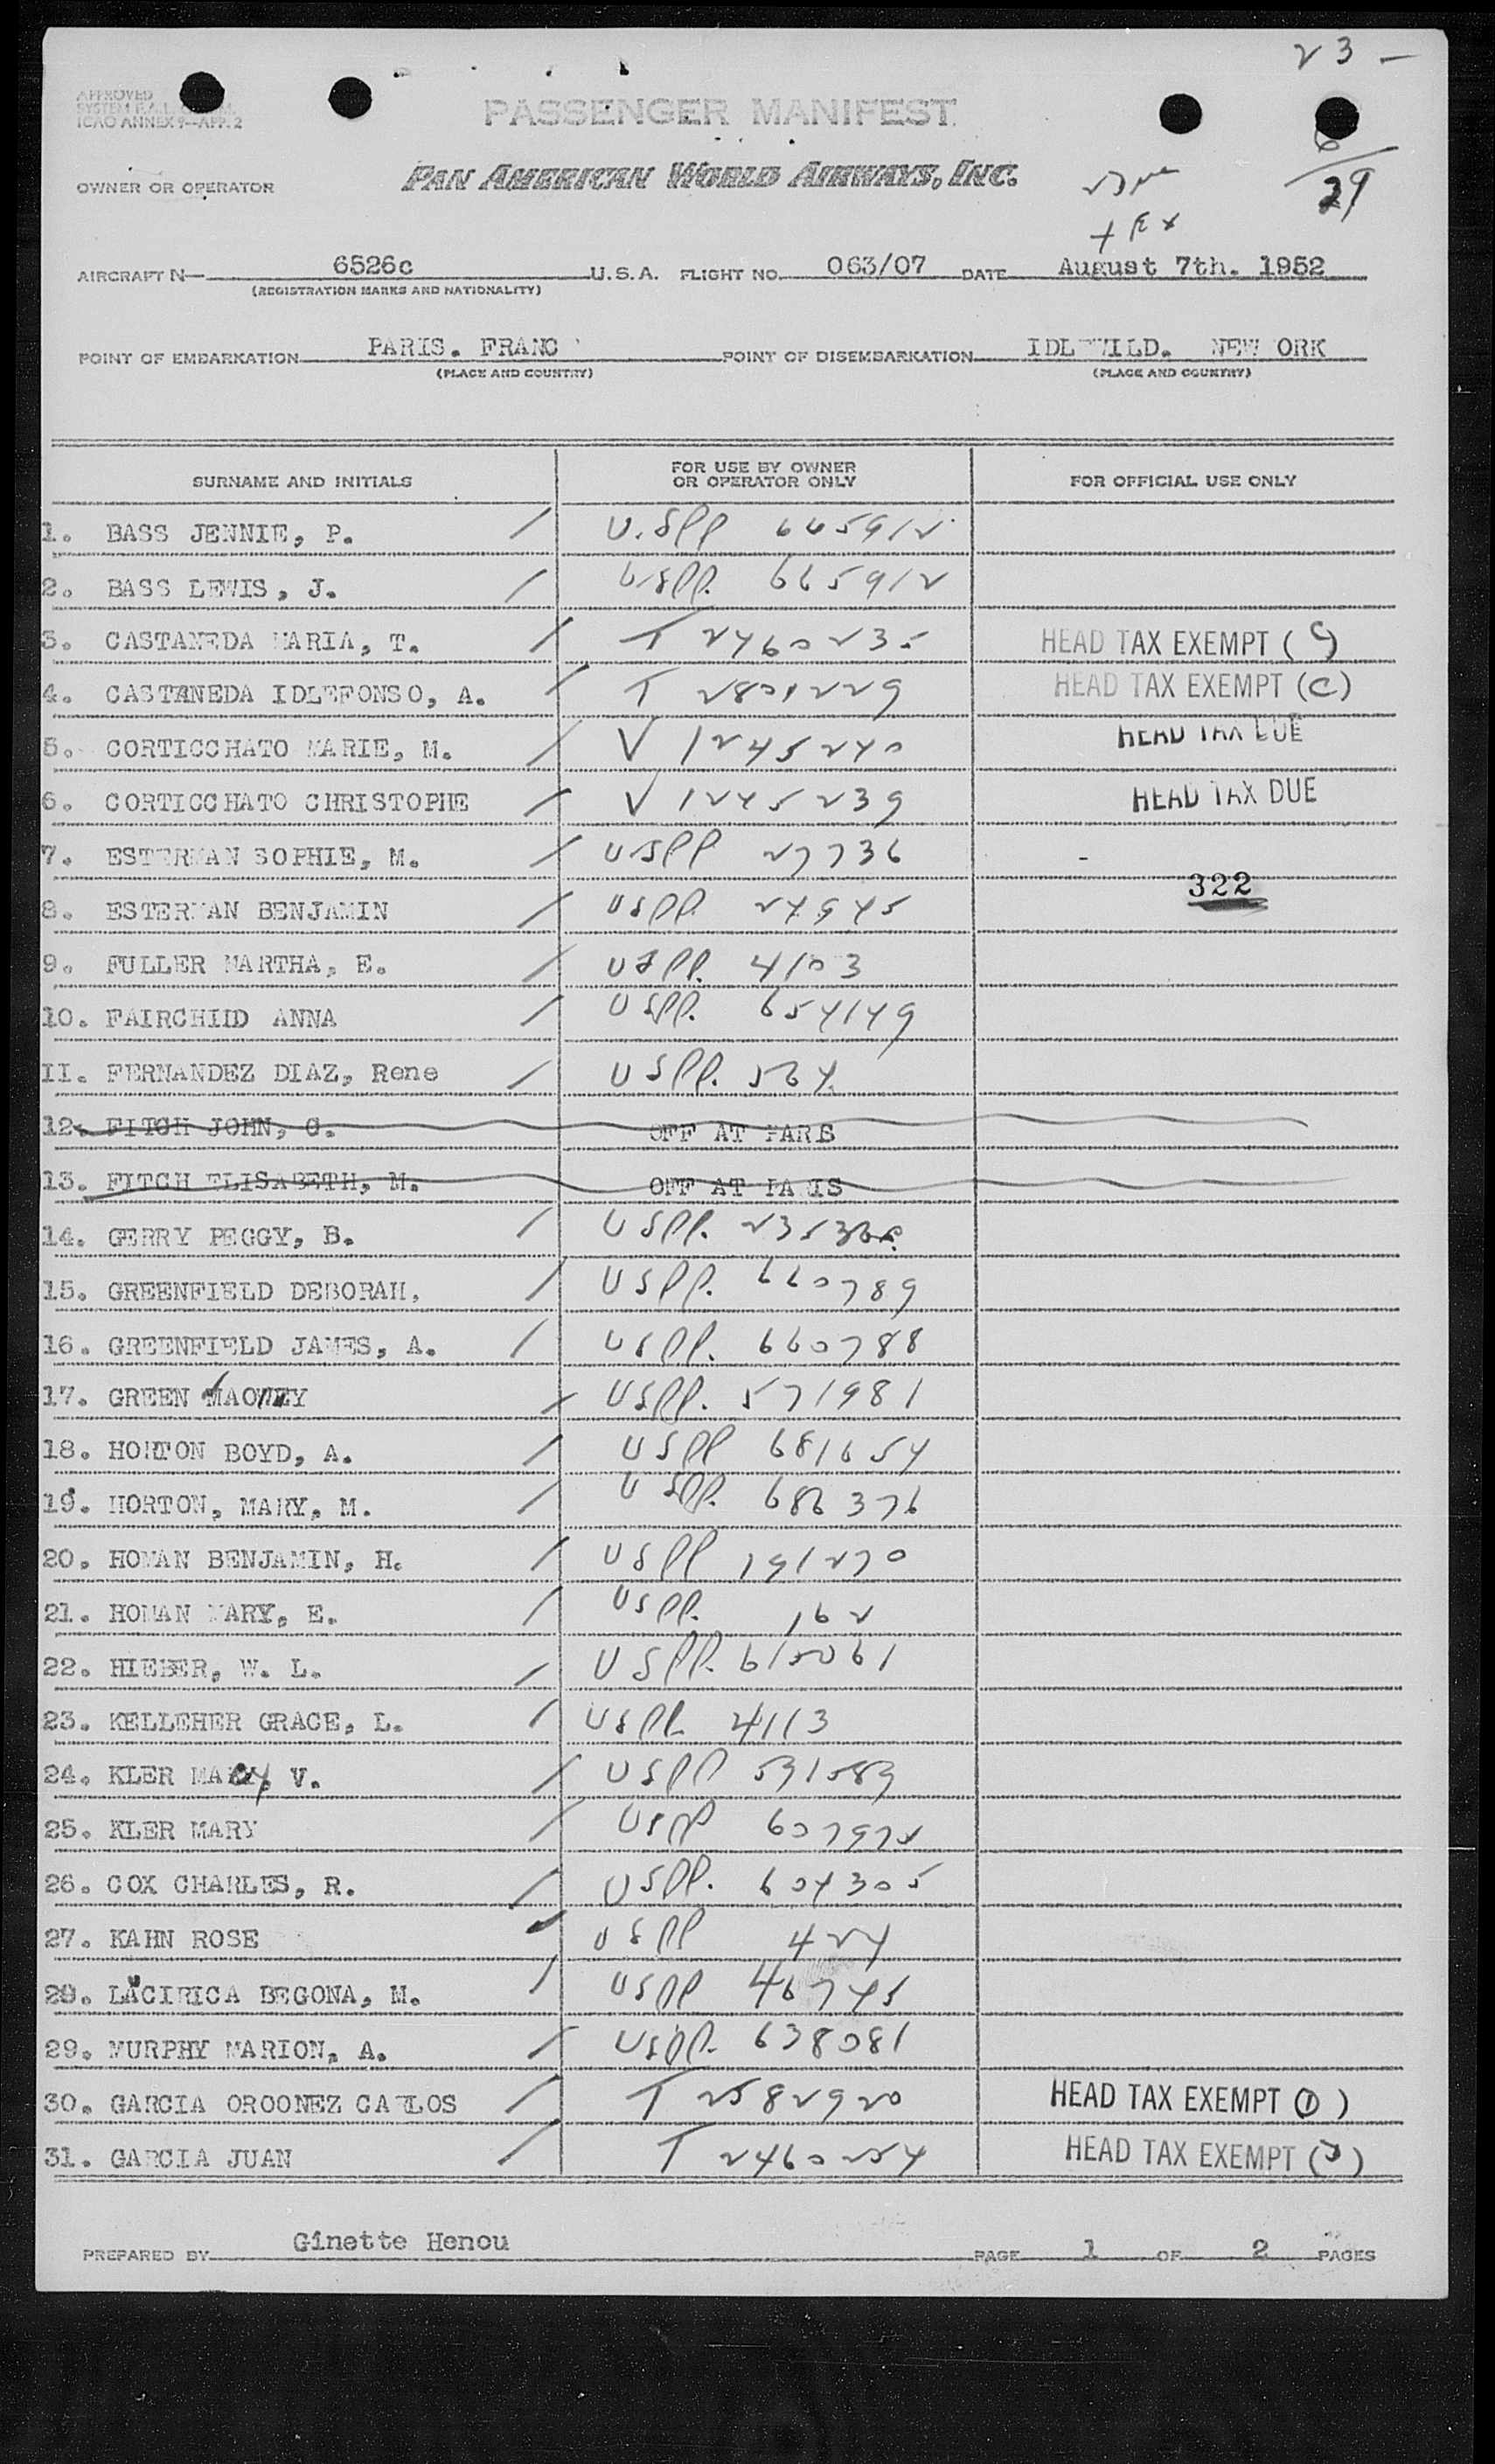 23 -
APPROVED
ICAO ANNEX 9--APP. 2
PASSENGER MANIFEST
6/29
OWNER OR OPERATOR PAN AMERICAN WORLD AIRWAYS, INC.
AIRCRAFT N— 6526c U.S.A. FLIGHT NO. 063/07 DATE August 7th. 1952
(REGISTRATION MARKS AND NATIONALITY)
POINT OF EMBARKATION PARIS. FRANC POINT OF DISEMBARKATION IDLEWILD. NEW ORK
(PLACE AND COUNTRY) (PLACE AND COUNTRY)
SURNAME AND INITIALS FOR USE BY OWNER OR OPERATOR ONLY FOR OFFICIAL USE ONLY
1. BASS JENNIE, P. / U.SPP 665912
2. BASS LEWIS, J. / USPP. 665912
3. CASTANEDA MARIA, T. / T 2460235 HEAD TAX EXEMPT (C)
4. CASTANEDA IDLEFONSO, A. / T 2801229 HEAD TAX EXEMPT (C)
5. CORTICCHATO MARIE, M. / V 1245240 HEAD TAX DUE
6. CORTICCHATO CHRISTOPHE / V 1245239 HEAD TAX DUE
7. ESTERMAN SOPHIE, M. / USPP 27736
8. ESTERMAN BENJAMIN / USPP 24945 322
9. FULLER MARTHA, E. / USPP. 4103
10. FAIRCHIID ANNA / USPP. 654149
II. FERNANDEZ DIAZ, Rene / USPP. 564
12. FITCH JOHN, C. OFF AT PARIS
13. FITCH ELISABETH, M. OFF AT PARIS
14. GERRY PEGGY, B. / USPP.
15. GREENFIELD DEBORAH. / USPP. 660789
16. GREENFIELD JAMES, A. / USPP. 660788
17. GREEN / USPP. 571981
18. HORTON BOYD, A. / USPP 681654
19. HORTON, MARY, M. / USPP. 686376
20. HOMAN BENJAMIN, H. / USPP 191270
21. HOMAN MARY, E. / USPP. 162
22. HIEBER, W. L. / USPP. 615061
23. KELLEHER GRACE, L. / USPP 4113
24. KLER MARY, V. / USPP 591589
25. KLER MARY / USPP 607975
26. COX CHARLES, R. / USPP. 604305
27. KAHN ROSE USPP 424
28. LUCIRICA BEGONA, M. / USPP 46745
29. MURPHY MARION, A. / USPP. 638081
30. GARCIA OROONEZ CARLOS / T 2582920 HEAD TAX EXEMPT (1)
31. GARCIA JUAN / T 2460254 HEAD TAX EXEMPT (J)
PREPARED BY Ginette Henou PAGE 1 OF 2 PAGES